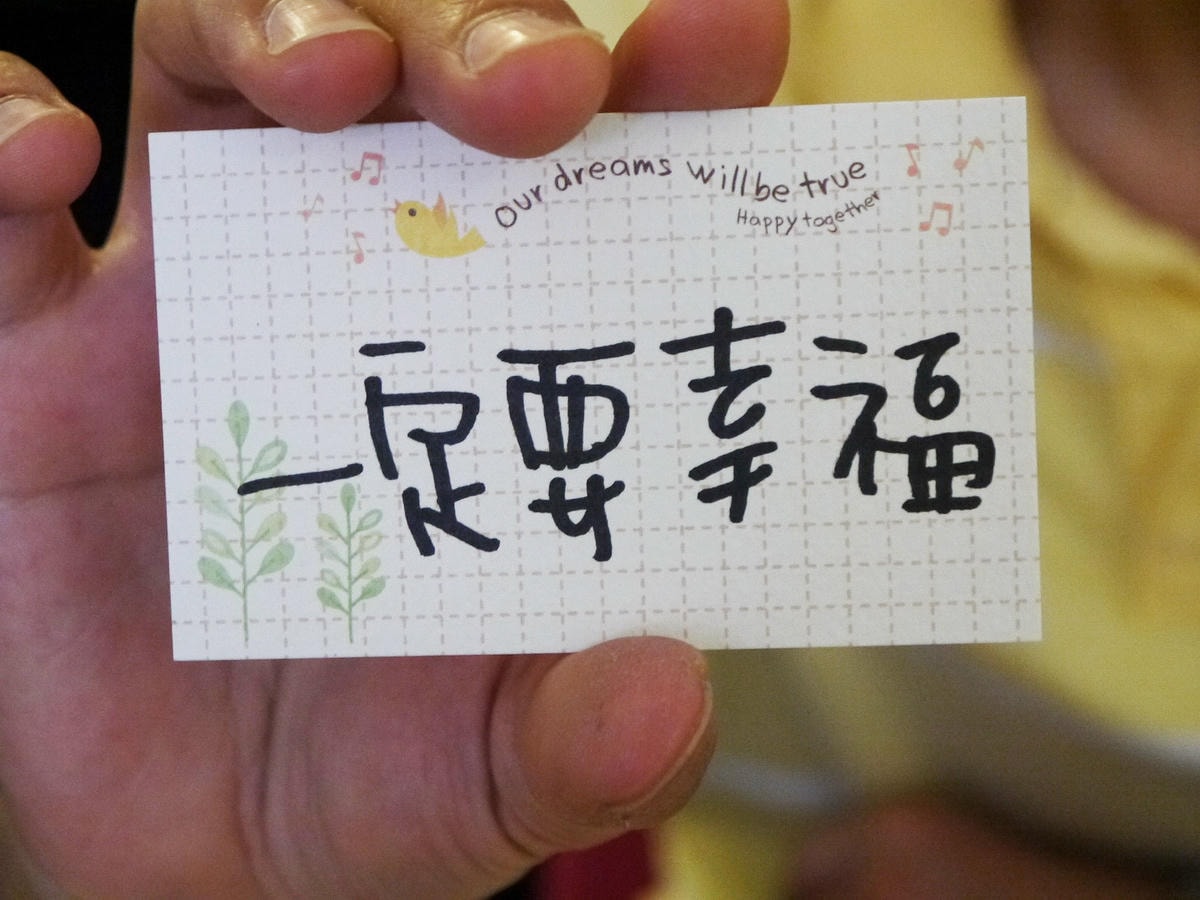 Our dreams will be true
Happy together
一定要幸福